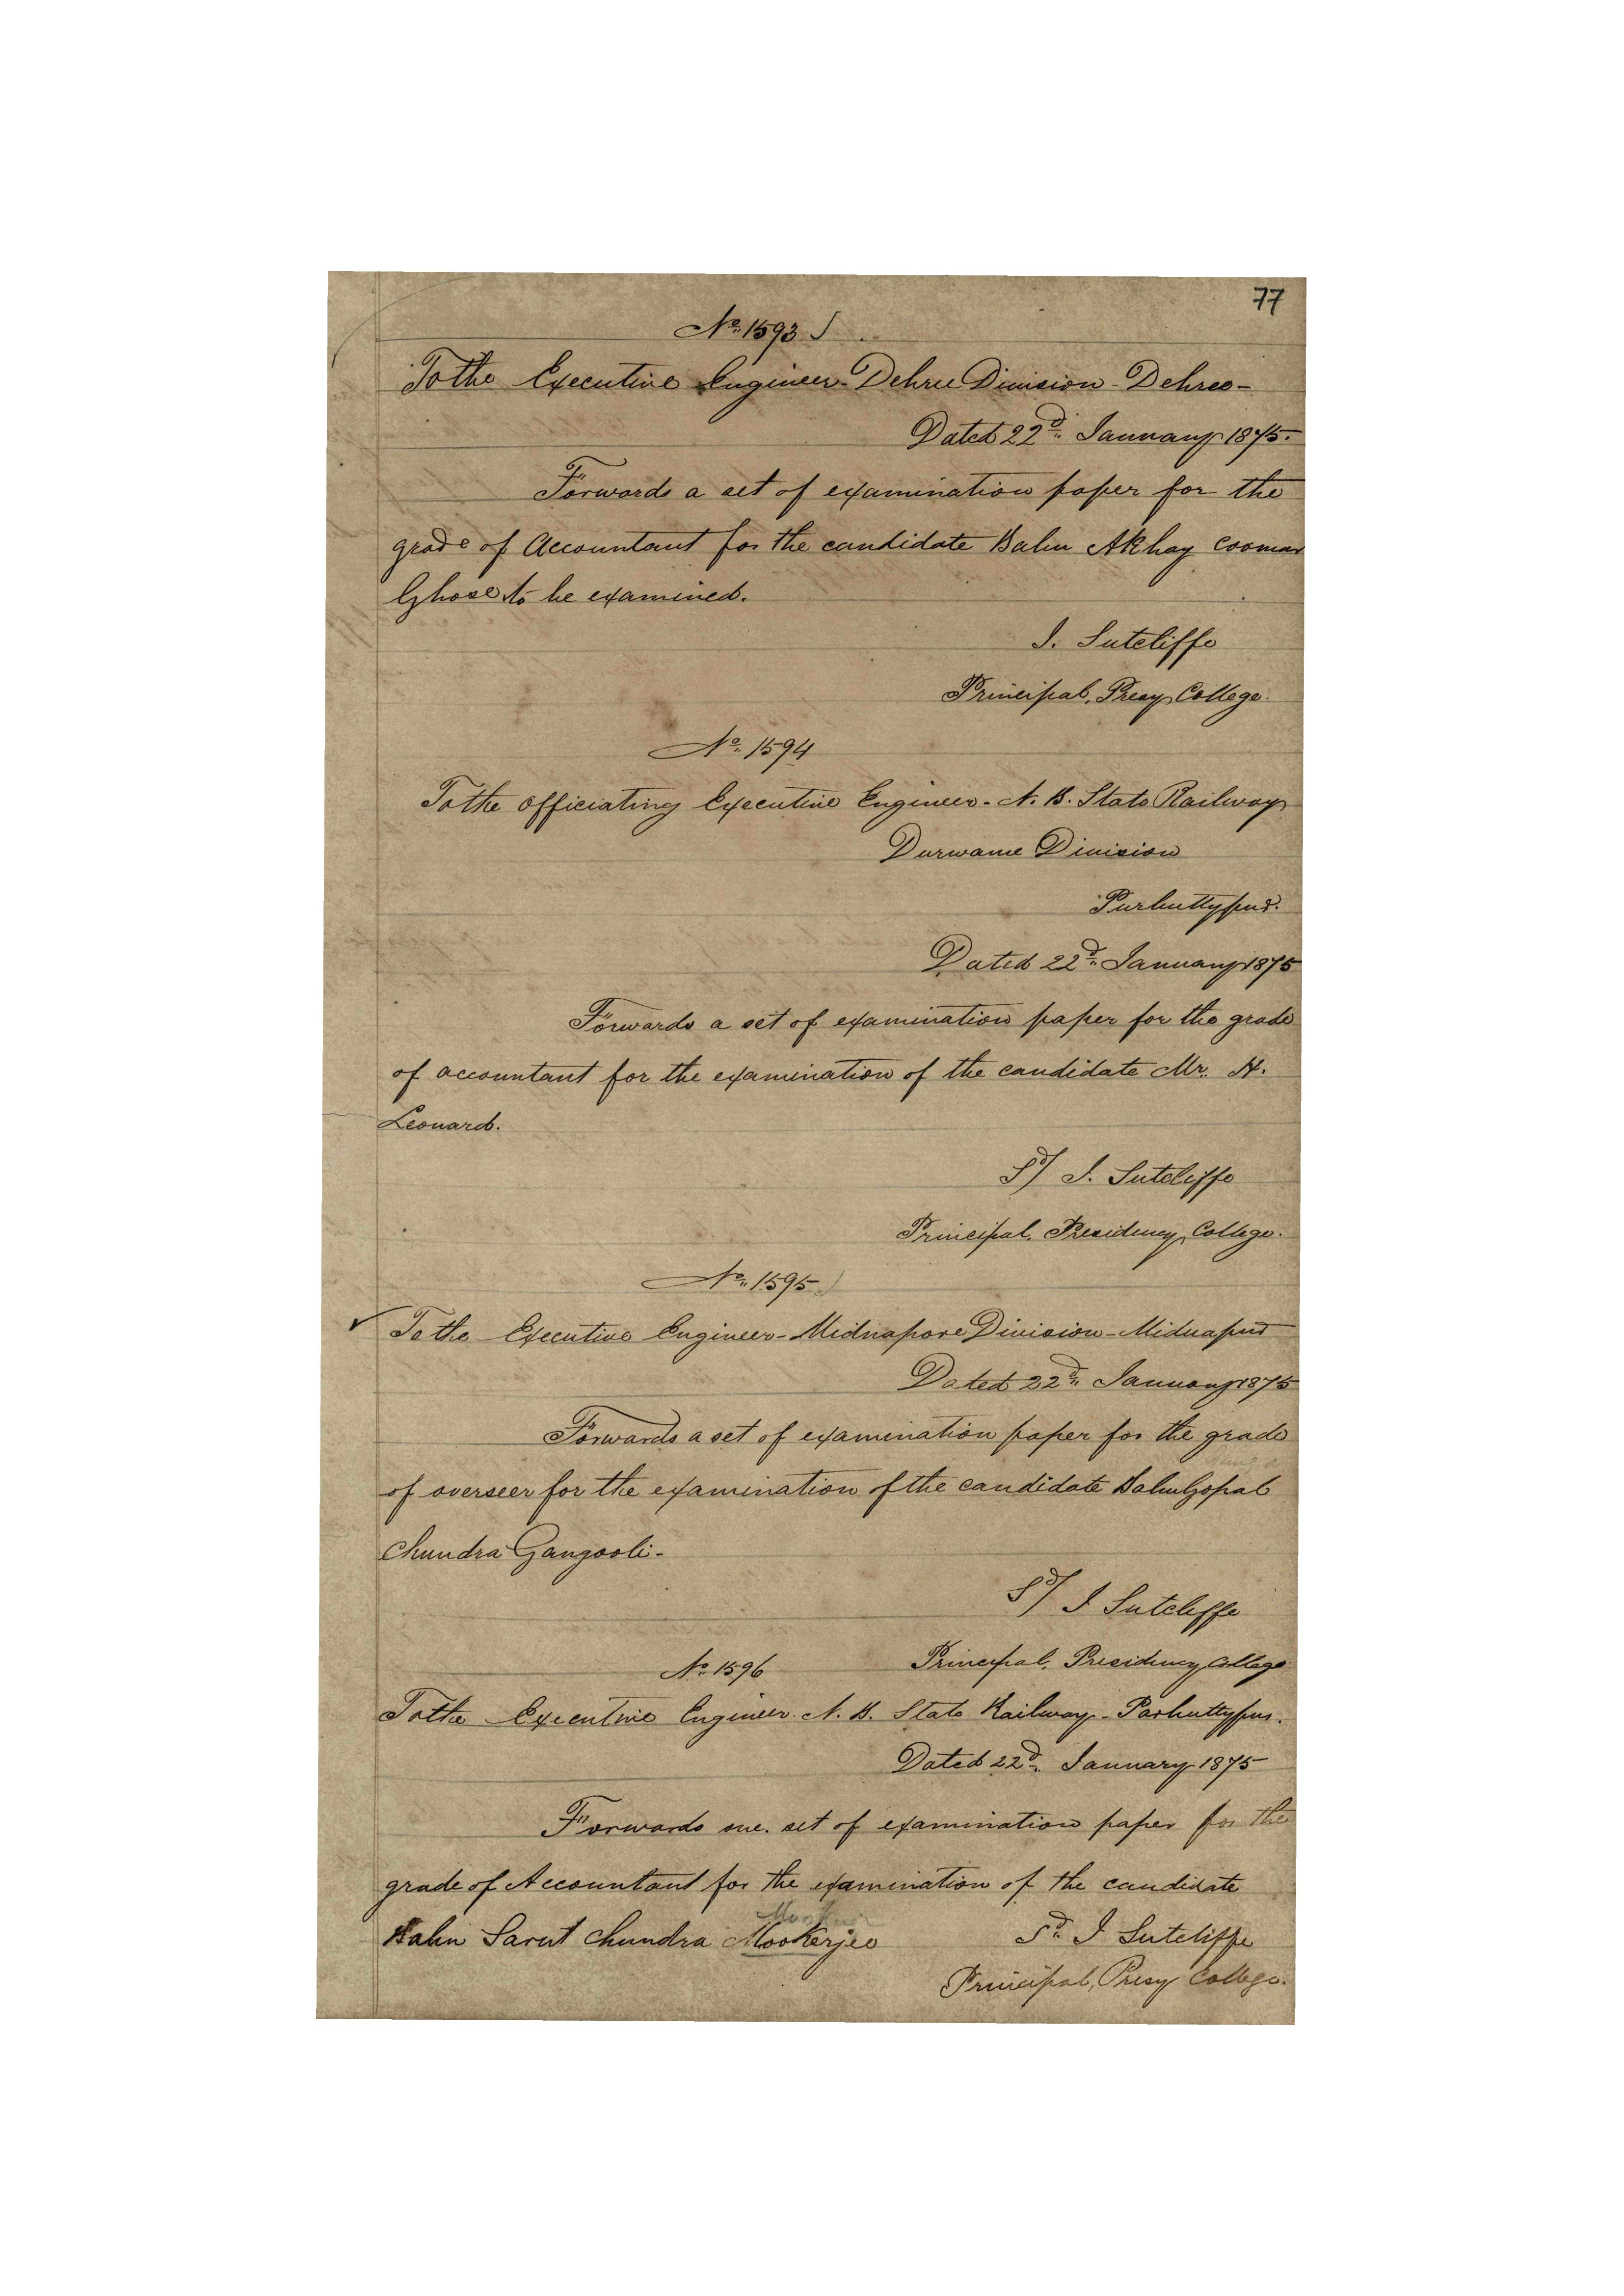 77
No. 1593
To the Executive Engineer - Dehree Division - Dehree -
Dated 22d. January 1875.
Forwards a set of examination paper for the
grade of Accountant for the candidate Babu Akhay Coomar
Ghose to be examined.
J. Sutcliffe
Principal, Presy College.
No. 1594
To the Officiating Executive Engineer - N. B. State Railway
Division
Purbuttypur.
Dated 22d. January 1875
Forwards a set of examination paper for the grade
of accountant for the examination of the candidate Mr. H.
Leonard.
Sd/ J. Sutcliffe
Principal, Presidency College.
No. 1595
To the Executive Engineer - Midnapore Division - Midnapur
Dated 22d. January 1875
Forwards a set of examination paper for the grade
of overseer for the examination of the candidate Babu Gopal
Chundra Gangooli -
Sd/ J Sutcliffe
Principal, Presidency College
No. 1596
To the Executive Engineer N. B. State Railway - Parbuttypur.
Dated 22d. January 1875
Forwards one set of examination paper for the
grade of Accountant for the examination of the candidate
Babu Sarut Chundra Mookerjee
Sd. J Sutcliffe
Principal, Presy College.